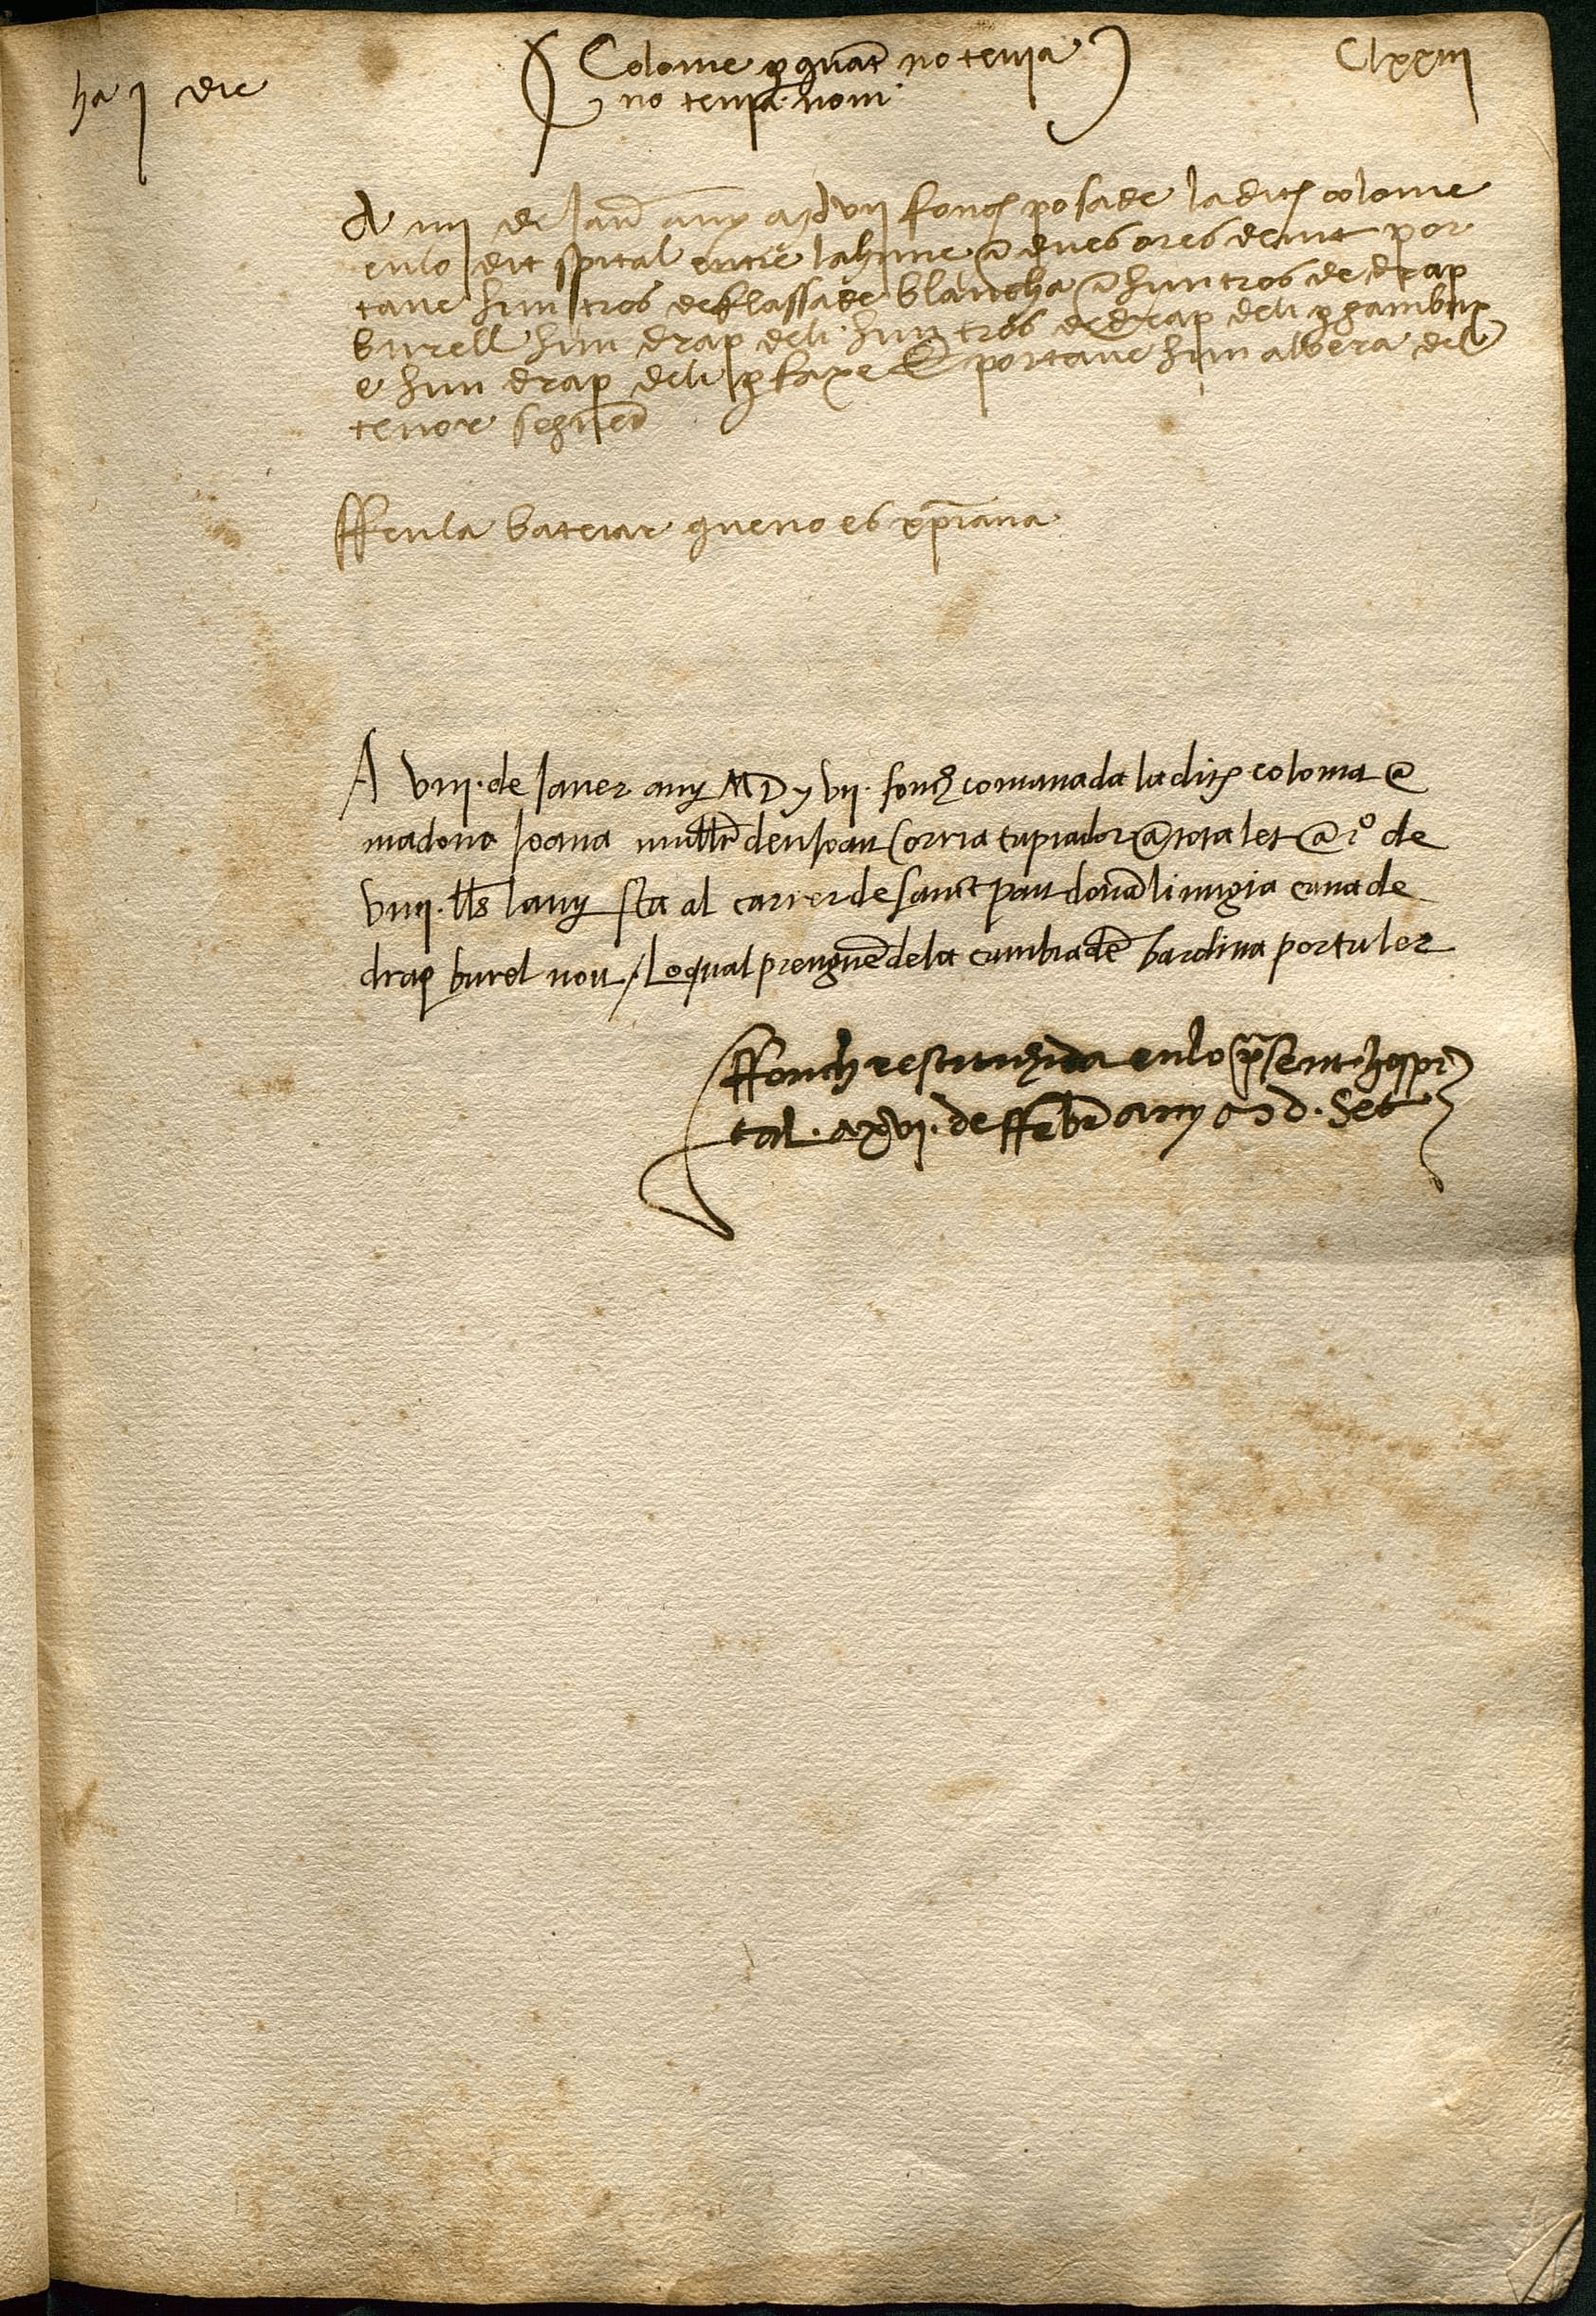 ha j die
Colome p quāt no tenia
no tenia nom
Clxxiii
A iiii de Janr any MDvii fonch posade la dita colome
en lo dit spital entre la hune e dues ores de nit por
tave hun tros de flassade blancha e hun tros de drap
burell hun drap de li hun tros de drap de li p gambux
e hun drap de li p faxe E portave hun albera del
tenor seguent
ffeu la bateiar que no es xpiana
A viii. de Janer any MD y vii. fonch comanada la dita coloma a
madona Joana mullr den Joan Corria tapiador a tota let a ro de
viiii. lls lany sta al carrer de sanct pau dona li migia cana de
drap burel nou / Lo qual prengue de la cambra de bardina portaler
ffonch restituhida en lo psent hospi
tal. a xvi. de ffebr any MD. set